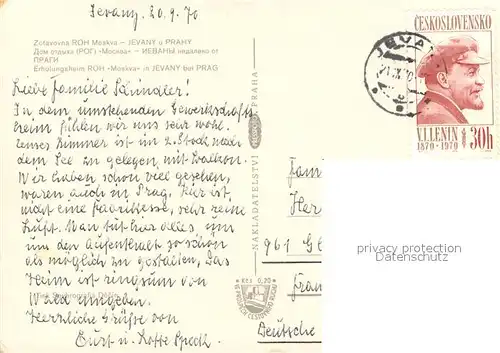 Jevany, 20.9.70
Zotavovna ROH Moskva — JEVANY u PRAHY
Дом отдыха (РОГ) «Москва» — ИЕВАНЫ недалеко от
ПРАГИ
Erholungsheim ROH «Moskva» in JEVANY bei PRAG
Liebe Familie
In dem umstehenden Gewerkschafts
heim fühlen wir uns sehr wohl.
Unser Zimmer ist im 2. Stock nach
dem See zu gelegen mit Balkon.
Wir haben schon viel gesehen,
waren auch in Prag. Hier ist
nicht eine sehr reine
Luft. Man tut hier alles, um
uns den Aufenthalt so schön
als möglich zu gestalten, Das
Heim ist ringsum von
Wald umgeben.
Herzliche Grüße von
Curt u. Lotte
NAKLADATELSTVÍ PRAHA
Kčs 0,20
JEVANY
ČESKOSLOVENSKO
V.I.LENIN
1870-1970
30h
Fam
Her
961 Gl
Fran
Deutsche
privacy protection
VERDECKT DATEN